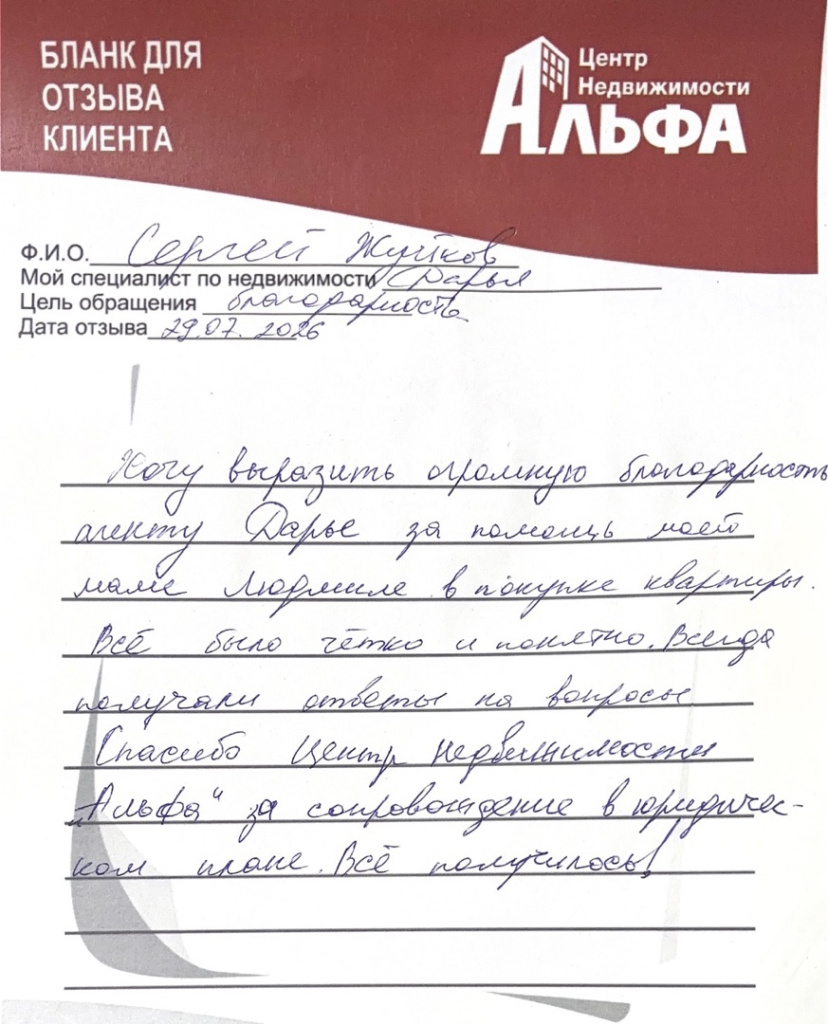 БЛАНК ДЛЯ
ОТЗЫВА
КЛИЕНТА
Центр
Недвижимости
АЛЬФА
Ф.И.О. Сергей Жутков
Мой специалист по недвижимости Дарья
Цель обращения благодарность
Дата отзыва 29.07.2026
Хочу выразить огромную благодарность
агенту Дарье за помощь моей
маме Людмиле в покупке квартиры.
Всё было чётко и понятно. Всегда
получали ответы на вопросы
Спасибо Центр недвижимости
„Альфа" за сопровождение в юридичес-
ком плане. Всё получилось!